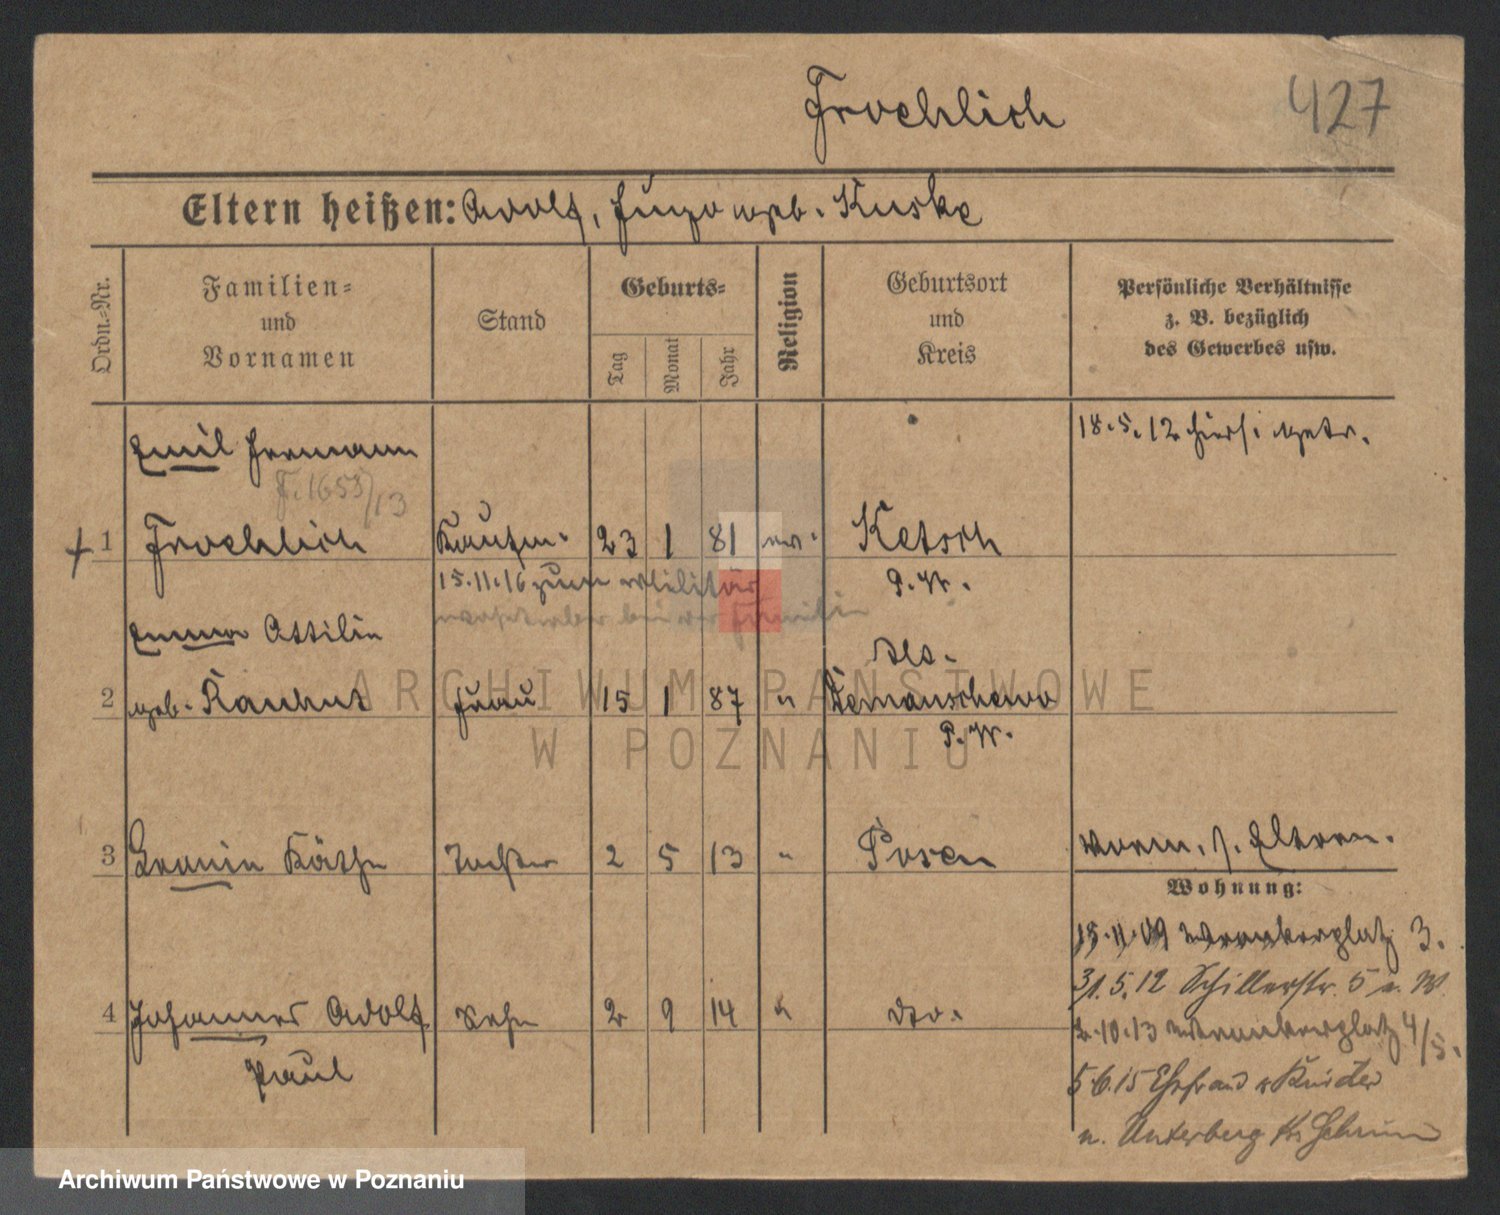 Froehlich
427
Eltern heißen: Adolf, geb. Kuske
Ordn.-Nr.
Familien-
und
Vornamen
Stand
Geburts-
Tag
Monat
Jahr
Religion
Geburtsort
und
Kreis
Persönliche Verhältnisse
z. B. bezüglich
des Gewerbes usw.
Emil Hermann
18.5.12 hiers. getr.
F. 1653/13
1 Froehlich Kaufm. 23 1 81 ev. Ketsch
15.11.16 zum Militär P. W.
Emma Ottilie
dto.
2 geb. Rauhut Frau 15 1 87 " Demanschewo
P. W.
3 Käthe Tochter 2 5 13 " Posen
Eltern.
Wohnung:
15.11.09 3.
31.5.12 Schillerstr. 5
4 Johannes Adolf Sohn 2 9 14 " dto.
2.10.13 4/5.
Paul
5.6.15 Ehefrau u. Kinder
n. Unterberg Kr. Schrimm
ARCHIWUM PAŃSTWOWE
W POZNANIU
Archiwum Państwowe w Poznaniu